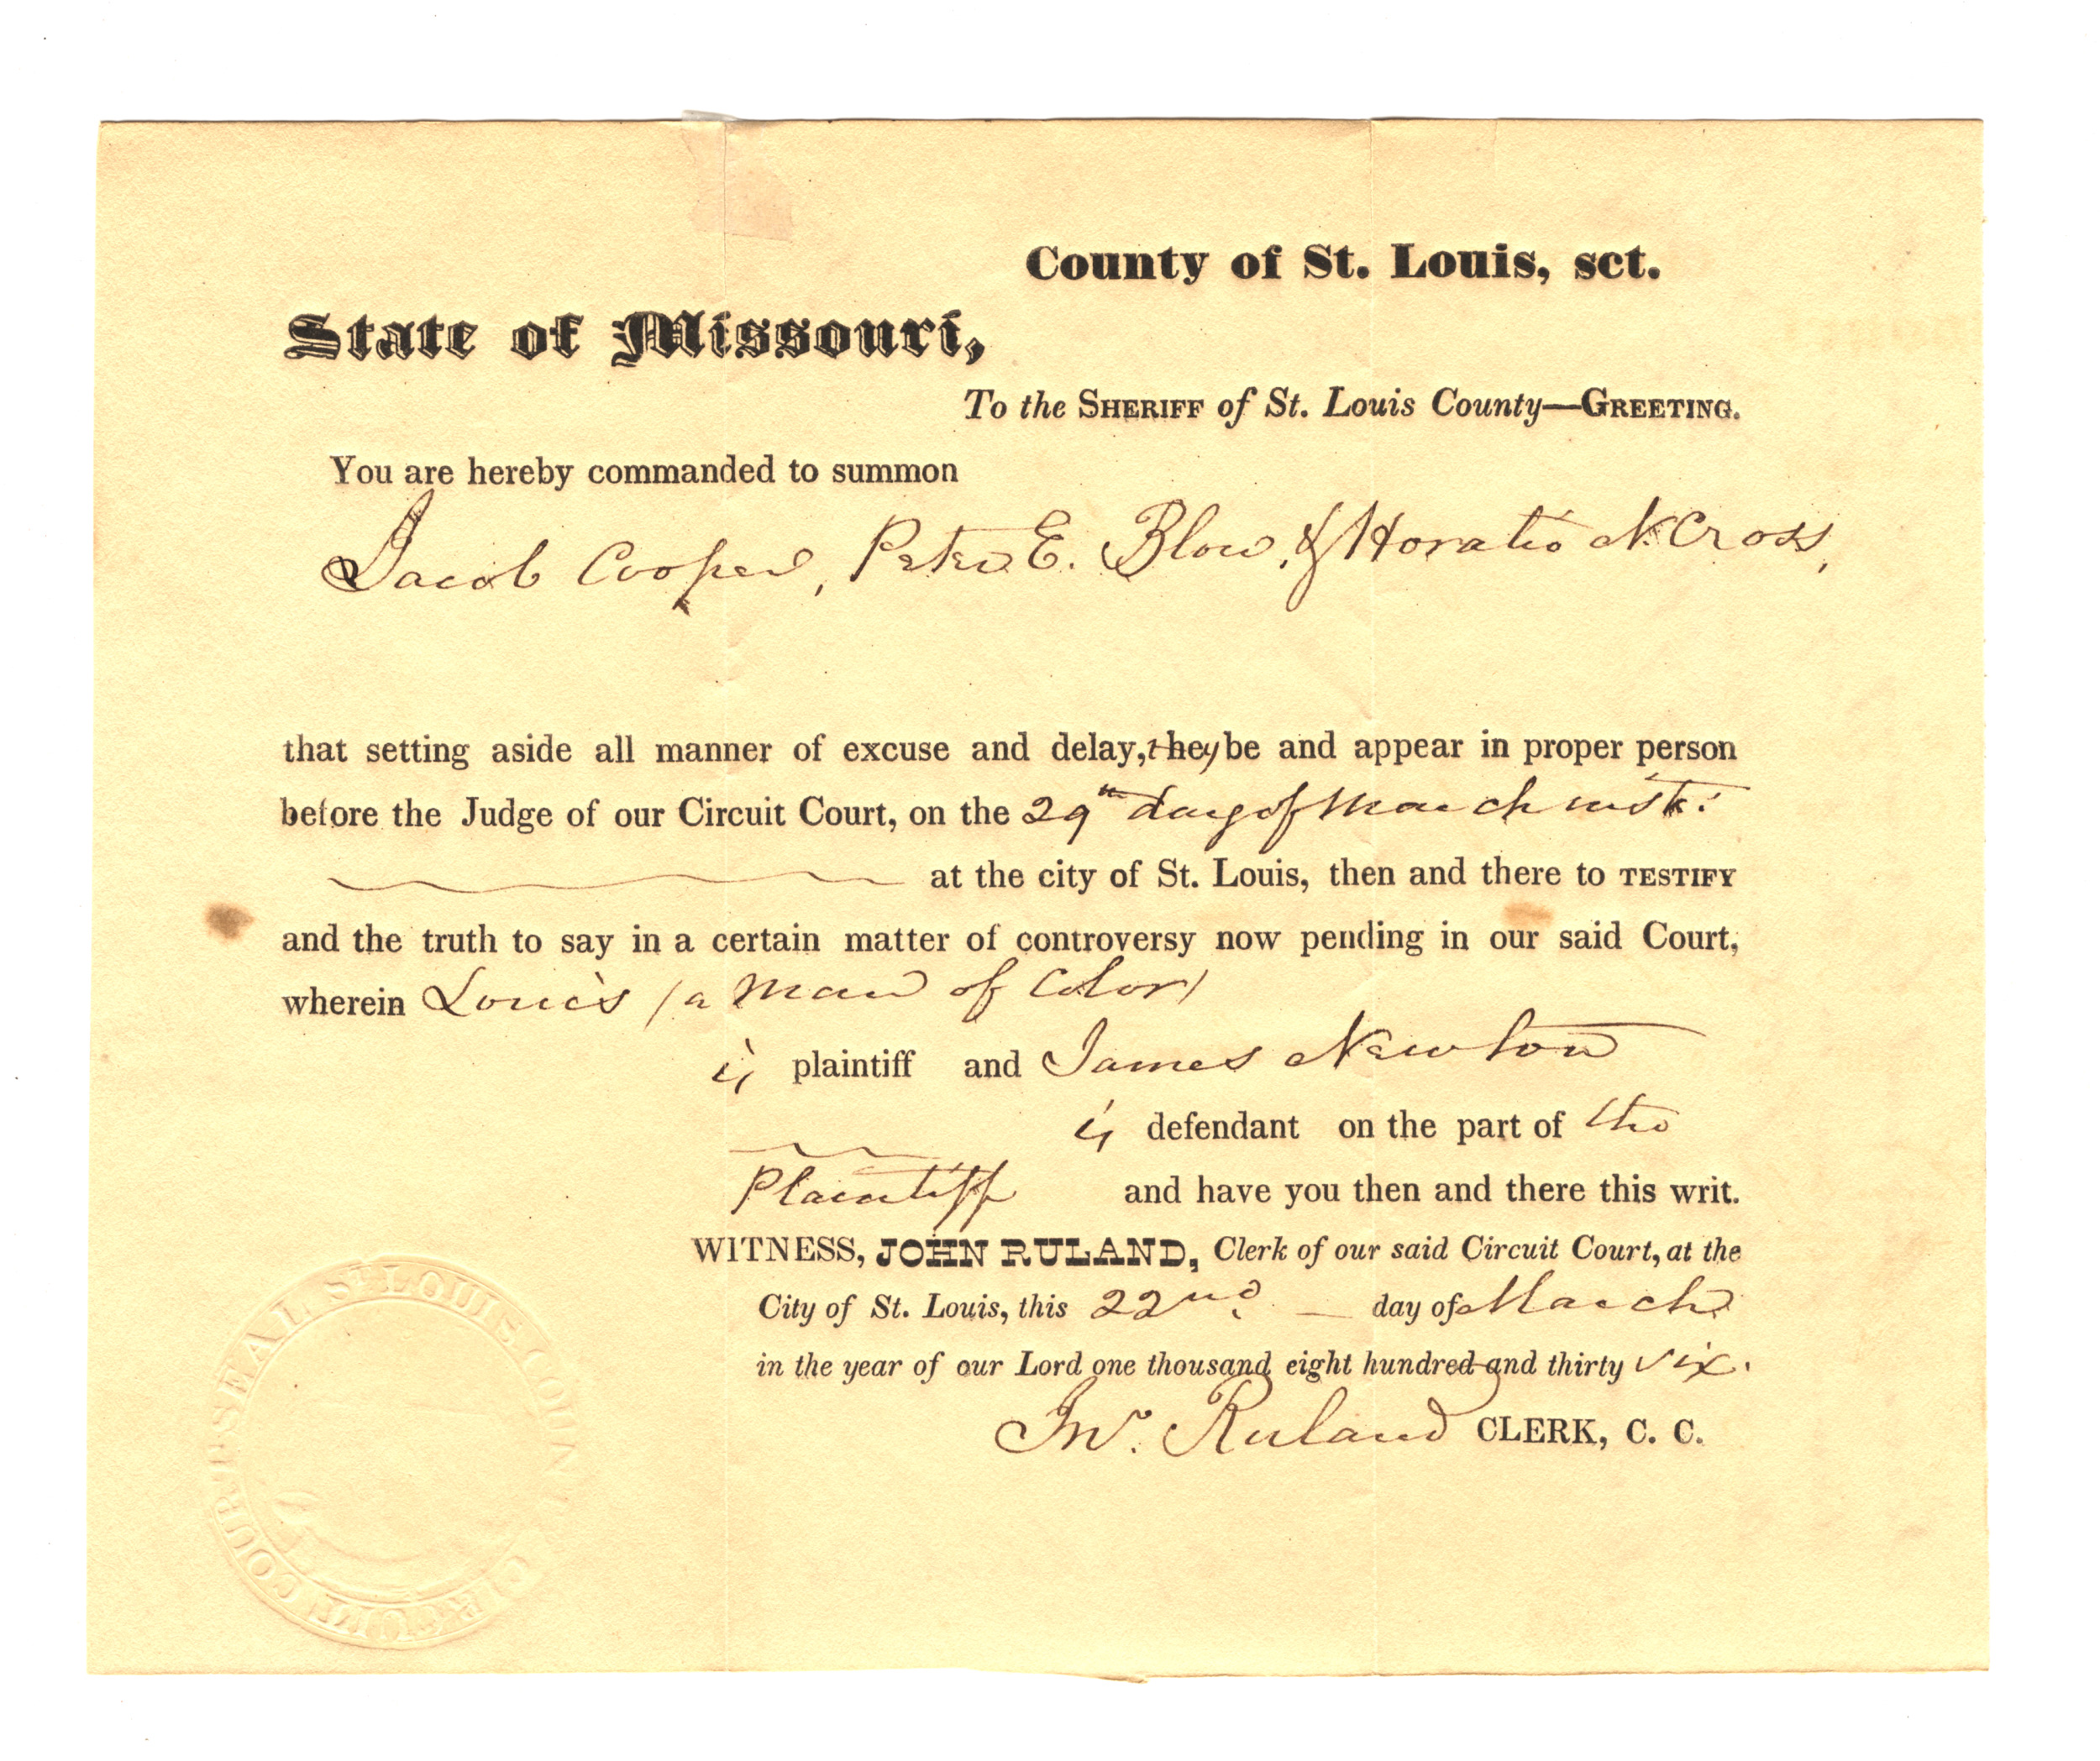 County of St. Louis, sct.
State of Missouri,
To the SHERIFF of St. Louis County—GREETING.
You are hereby commanded to summon
Jacob Cooper, Peter E. Blow, & Horatio N. Cross,
that setting aside all manner of excuse and delay, they be and appear in proper person
before the Judge of our Circuit Court, on the 29th day of March inst.
at the city of St. Louis, then and there to TESTIFY
and the truth to say in a certain matter of controversy now pending in our said Court,
wherein Louis (a man of color)
is plaintiff and James Newton
is defendant on the part of the
Plaintiff and have you then and there this writ.
WITNESS, JOHN RULAND, Clerk of our said Circuit Court, at the
City of St. Louis, this 22nd. — day of March
in the year of our Lord one thousand eight hundred and thirty six.
Jno. Ruland CLERK, C. C.
SEAL ST LOUIS COUN CIRCUIT COURT